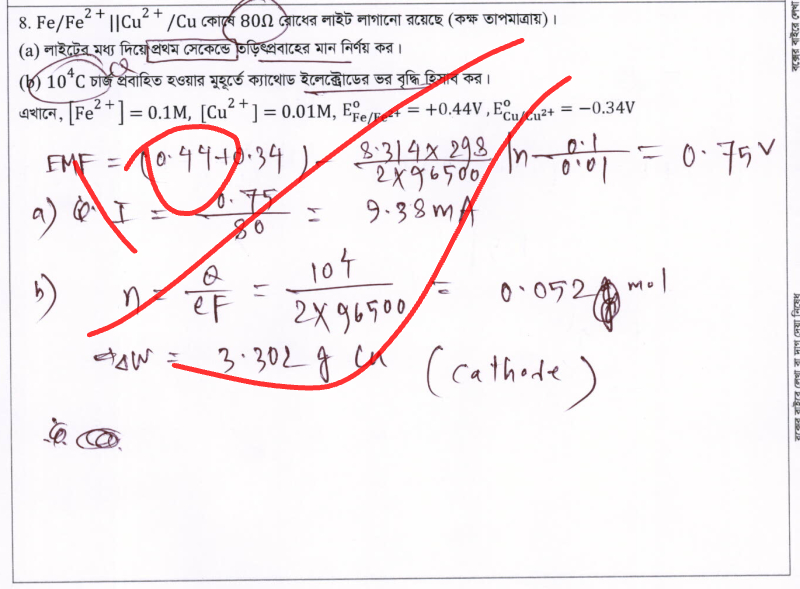 8. Fe/Fe²⁺||Cu²⁺/Cu কোষে 80Ω রোধের লাইট লাগানো রয়েছে (কক্ষ তাপমাত্রায়)।
(a) লাইটের মধ্য দিয়ে প্রথম সেকেন্ডে তড়িৎপ্রবাহের মান নির্ণয় কর।
(b) 10⁴C চার্জ প্রবাহিত হওয়ার মুহূর্তে ক্যাথোড ইলেকট্রোডের ভর বৃদ্ধি হিসাব কর।
এখানে, [Fe²⁺] = 0.1M, [Cu²⁺] = 0.01M, E°Fe/Fe²⁺ = +0.44V, E°Cu/Cu²⁺ = −0.34V
EMF = (0.44+0.34) - 8.314×298/2×96500 ln 0.1/0.01 = 0.75V
a) I = 0.75/80 = 9.38mA
b) n = Q/eF = 10⁴/2×96500 = 0.052 mol
ΔW = 3.302 g Cu (Cathode)